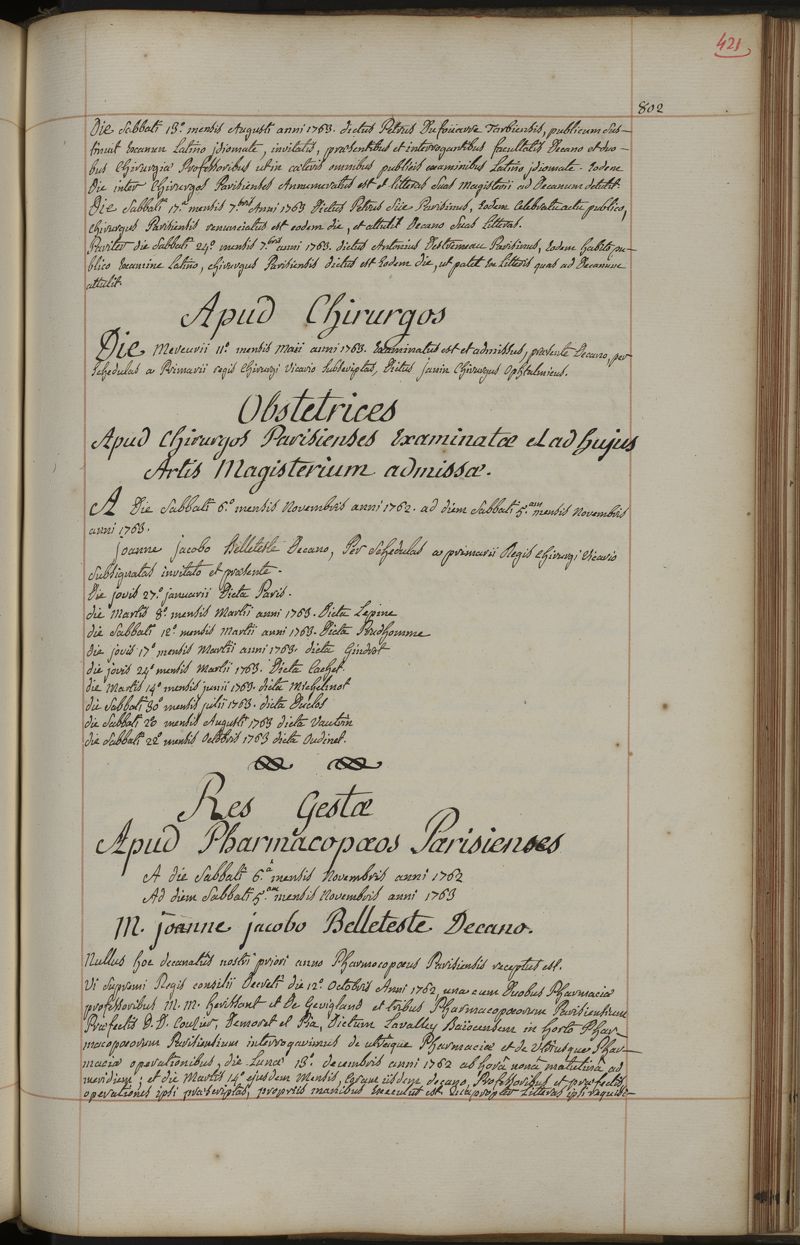 421
802
Die Sabbati 13.o mensis Augusti anni 1763. dictus Petrus Dufouarre Tarbiensis, publicum sus-
tinuit Examen Latino idiomate, invitatis, præsentibus et interrogantibus facultatis Decano et duo-
bus Chirurgiæ Professoribus ut in cæteris omnibus publicis examinibus Latino idiomate. Eodem
Die inter Chirurgos Parisienses Annumeratus est et litteras suas Magisterii ad Decanum detulit.
Die Sabbati 17.a mensis 7.bris Anni 1763 Dictus Petrus Süe Parisinus, Eodem Celebrato actu publico,
Chirurgus Parisiensis renunciatus est eodem die, et attulit Decano Suas Litteras.
Pariter die Sabbati 24.o mensis 7.bris anni 1763. dictus Antonius Destremeau Parisinus, Eodem habito pu-
blico Examine Latino, chirurgus Parisiensis dictus est Eodem die, ut patet Ex Litteris quas ad Decanum
attulit.
Apud Chirurgos
Die Mercurii 11.o mensis Maii anni 1763. Examinatus est et admissus, præsente Decano, per
Schedulas a Primarii regis Chirurgi Vicario Subscriptas, Dictus janin Chirurgus Ophtalmicus.
Obstetrices
Apud Chirurgos Parisienses Examinatæ et ad hujus
Artis Magisterium admissæ.
A Die Sabbati 6.o mensis Novembris anni 1762. ad diem Sabbati 5.am mensis Novembris
anni 1763.
Joanne Jacobo Belleteste Decano, Per Schedulas a primarii Regis Chirurgi Vicario
Subsignatas invitato et præsente.
Die jovis 27.o januarii Dicta Paris.
die Martis 8.o mensis Martii anni 1763. Dicta Lepine
die Sabbati 12.o mensis Martii anni 1763. Dicta Prudhomme
die jovis 17.o mensis Martii anni 1763. dicta Gindrot
die jovis 24.o mensis Martii 1763. Dicta Cachet.
die Martis 14.o mensis junii 1763. dicta Michelinot
die Sabbati 30.o mensis julii 1763. dicta Duclos
die Sabbati 20 mensis Augusti 1763 dicta Vautrin
die Sabbati 22.o mensis Octobris 1763 dicta Oudinet.
Res Gestæ
Apud Pharmacopæos Parisienses
A die Sabbati 6.a mensis Novembris anni 1762
Ad diem Sabbati 5.am mensis Novembris anni 1763
M. joanne jacobo Belleteste Decano.
Nullus hoc decanatûs nostri priori anno Pharmacopæus Parisiensis receptus est.
Vi Supremi Regis consilii Decreti die 12.o Octobris Anni 1762 una cum Duobus Pharmaciæ
professoribus M. M. Herissant et De Gevigland et tribus Pharmacopæorum Parisiensium
Præfectis D. D. Coulier, Demoret et Pia, Dictum Lavalley Baiocensem in horto Phar-
macopæorum Parisiensium interrogavimus de utrâque Pharmaciâ et de Utriusque Phar-
maciæ operationibus, die Lunæ 13.o decembris anni 1762 ab horâ nonâ matutinâ ad
meridiem; et die Martis 14.o ejusdem Mensis, Coram iisdem decano, Professoribus et præfectis,
operationes ipsi præscriptas, propriis manibus Executus est Quapropter Litteras ipsi requisi-